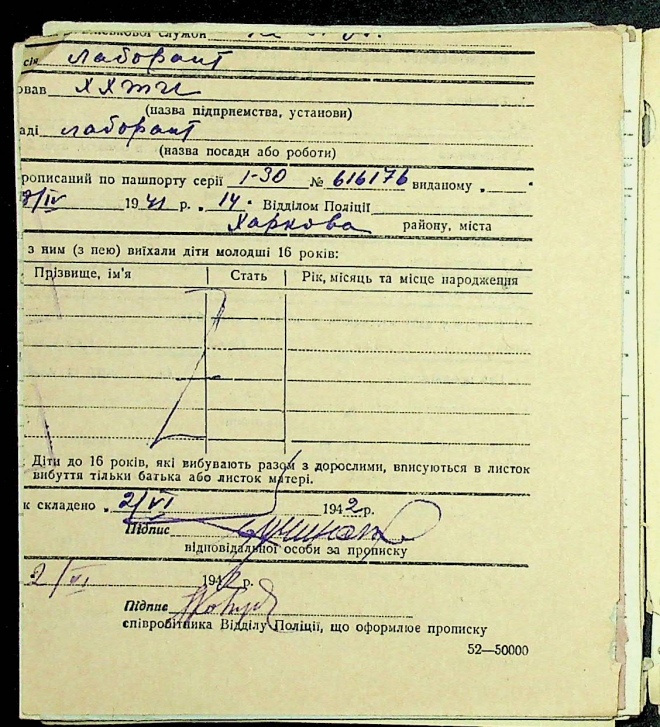 військової служби
сія лаборант
ював ХХТИ
(назва підприємства, установи)
аді лаборант
(назва посади або роботи)
рописаний по пашпорту серії 1-30 № 616176 виданому „ "
/IV 1941 р. „ 14. Відділом Поліції
Харкова району, міста
з ним (з нею) виїхали діти молодші 16 років:
Прізвище, ім'я Стать Рік, місяць та місце народження
Діти до 16 років, які вибувають разом з дорослими, вписуються в листок
вибуття тільки батька або листок матері.
к складено „ 2/VI 1942 р.
Підпис
відповідальної особи за прописку
2/VI 1942 р.
Підпис
співробітника Відділу Поліції, що оформлює прописку
52—50000